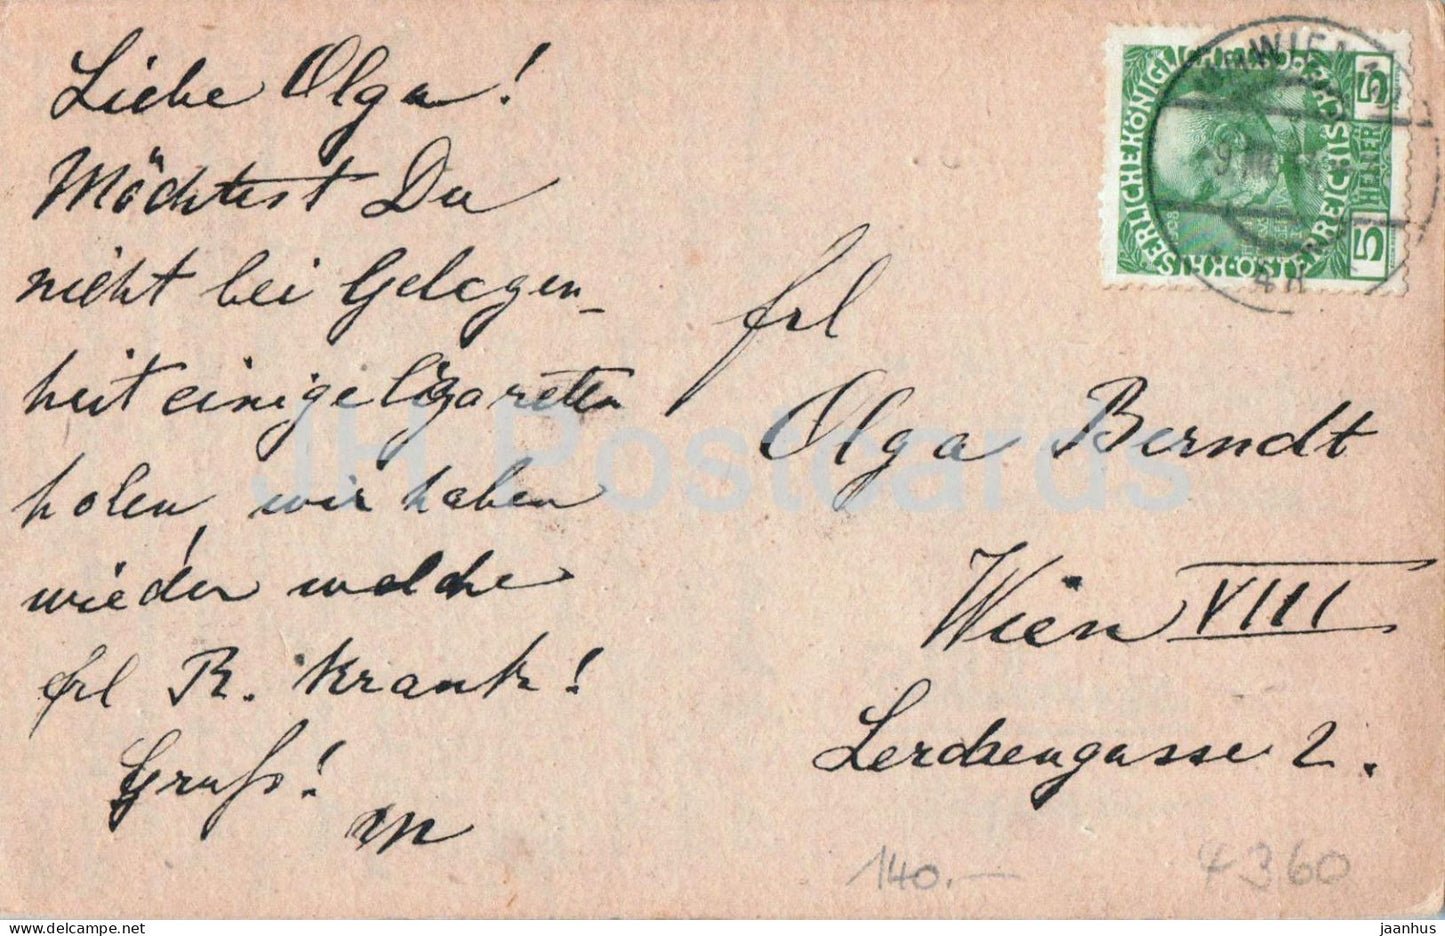 Liebe Olga!
Möchtest Du
nicht bei Gelegen_
heit einige Cigaretten
holen, wir haben
wieder welche
frl R. krank!
Gruß!
M
frl
Olga Berndt
Wien VIII
Lerchengasse 2.
KAISERLICHE KÖNIGLICHE
ÖSTERREICHISCHE POST
5 HELLER 5
1908
WIEN
9 VIII
140.—
4360
JH Postcards
jaanhus @ delcampe.net